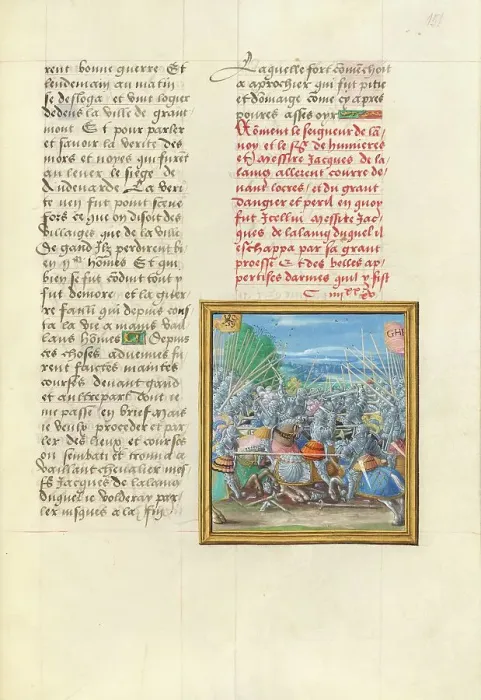 151
rent bonne guerre Et
lendemain au matin
se desloga et vint logier
dedens la ville de grant
mont Et pour parler
et savoir la verite des
mors et noyes qui furēt
au lever le siege de
Audenarde La veri
te nen fut point sceue
fors ce que on disoit des
villaiges que de la ville
de gand Ilz perdirent bi
en hōmes Et qui
bien se fut cōduit tout y
fut demore et la guer
re failli qui depuis cous
ta la vie a mains vail
lans hōmes Depuis
ces choses advenues fu
rent faictes maintes
courses devant gand
et aultrepart dont ie
me passe en brief Mais
ie veulx proceder et par
ler des lieux et courses
ou sembati et trouva ce
vaillant chevalier mes
sē Jacques de lalaing
duquel ie voldray par
ler iusques a la fin
Laquelle fort cōmēchoit
a aprochier qui fut pitie
et dōmaige cōme cy apres
pourres asses oyr
Cōment le seigneur de lā
noy et le sgr de humieres
et Messire Jacques de la
laing allerent courre de
vant locres / et du grant
dangier et peril en quoy
fut Icellui Messire Jac
ques de lalaing duquel il
eschappa par sa grant
proesse Et des belles ap
pertises darmes quil y fist
GH